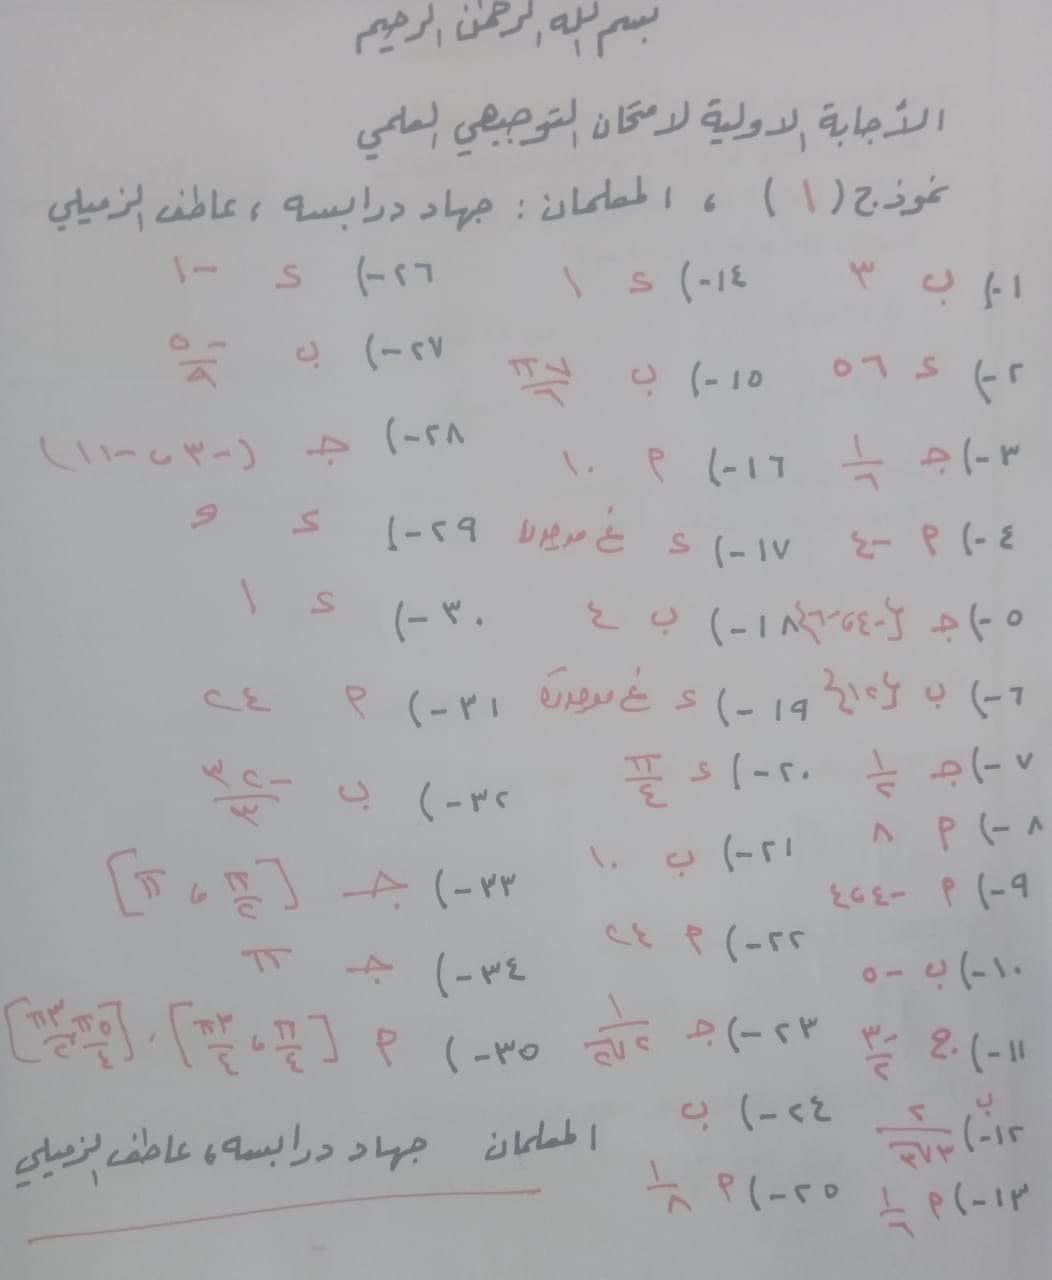 بسم الله الرحمن الرحيم
الأجابة الاولية لامتحان التوجيهي العلمي
نموذج (١) ، المعلمان : جهاد درابسه ، عاطف الزميلي
١-) ب ٣
٢-) د ٦٥
٣-) جـ ١/٦
٤-) م -٤
٥-) جـ {-٤، -٦}
٦-) ب {١،٥}
٧-) جـ ١/٢
٨-) م ٨
٩-) م -٤،٤
١٠-) ب -٥
١١-) ج -٣/٢
١٢-) ب ٢/٣√٣
١٣-) م ١/٦
١٤-) د ١
١٥-) ب ٧π/٦
١٦-) م ١٠
١٧-) د غ موجودة
١٨-) ب ٤
١٩-) د غ موجودة
٢٠-) د π/٤
٢١-) ب ١٠
٢٢-) م ٢٤
٢٣-) جـ ١/٢√٥
٢٤-) ب
٢٥-) م ١/٨
٢٦-) د -١
٢٧-) ب -٥/٨
٢٨-) جـ (-٣، -١١)
٢٩-) د و
٣٠-) د ١
٣١-) م ٢٤
٣٢-) ب
٣٣-) جـ [π/٢ ، π]
٣٤-) جـ π
٣٥-) م [π/٤ ، ٣π/٤] ، [٥π/٤ ، ٣π/٢]
المعلمان جهاد درابسه، عاطف الزميلي